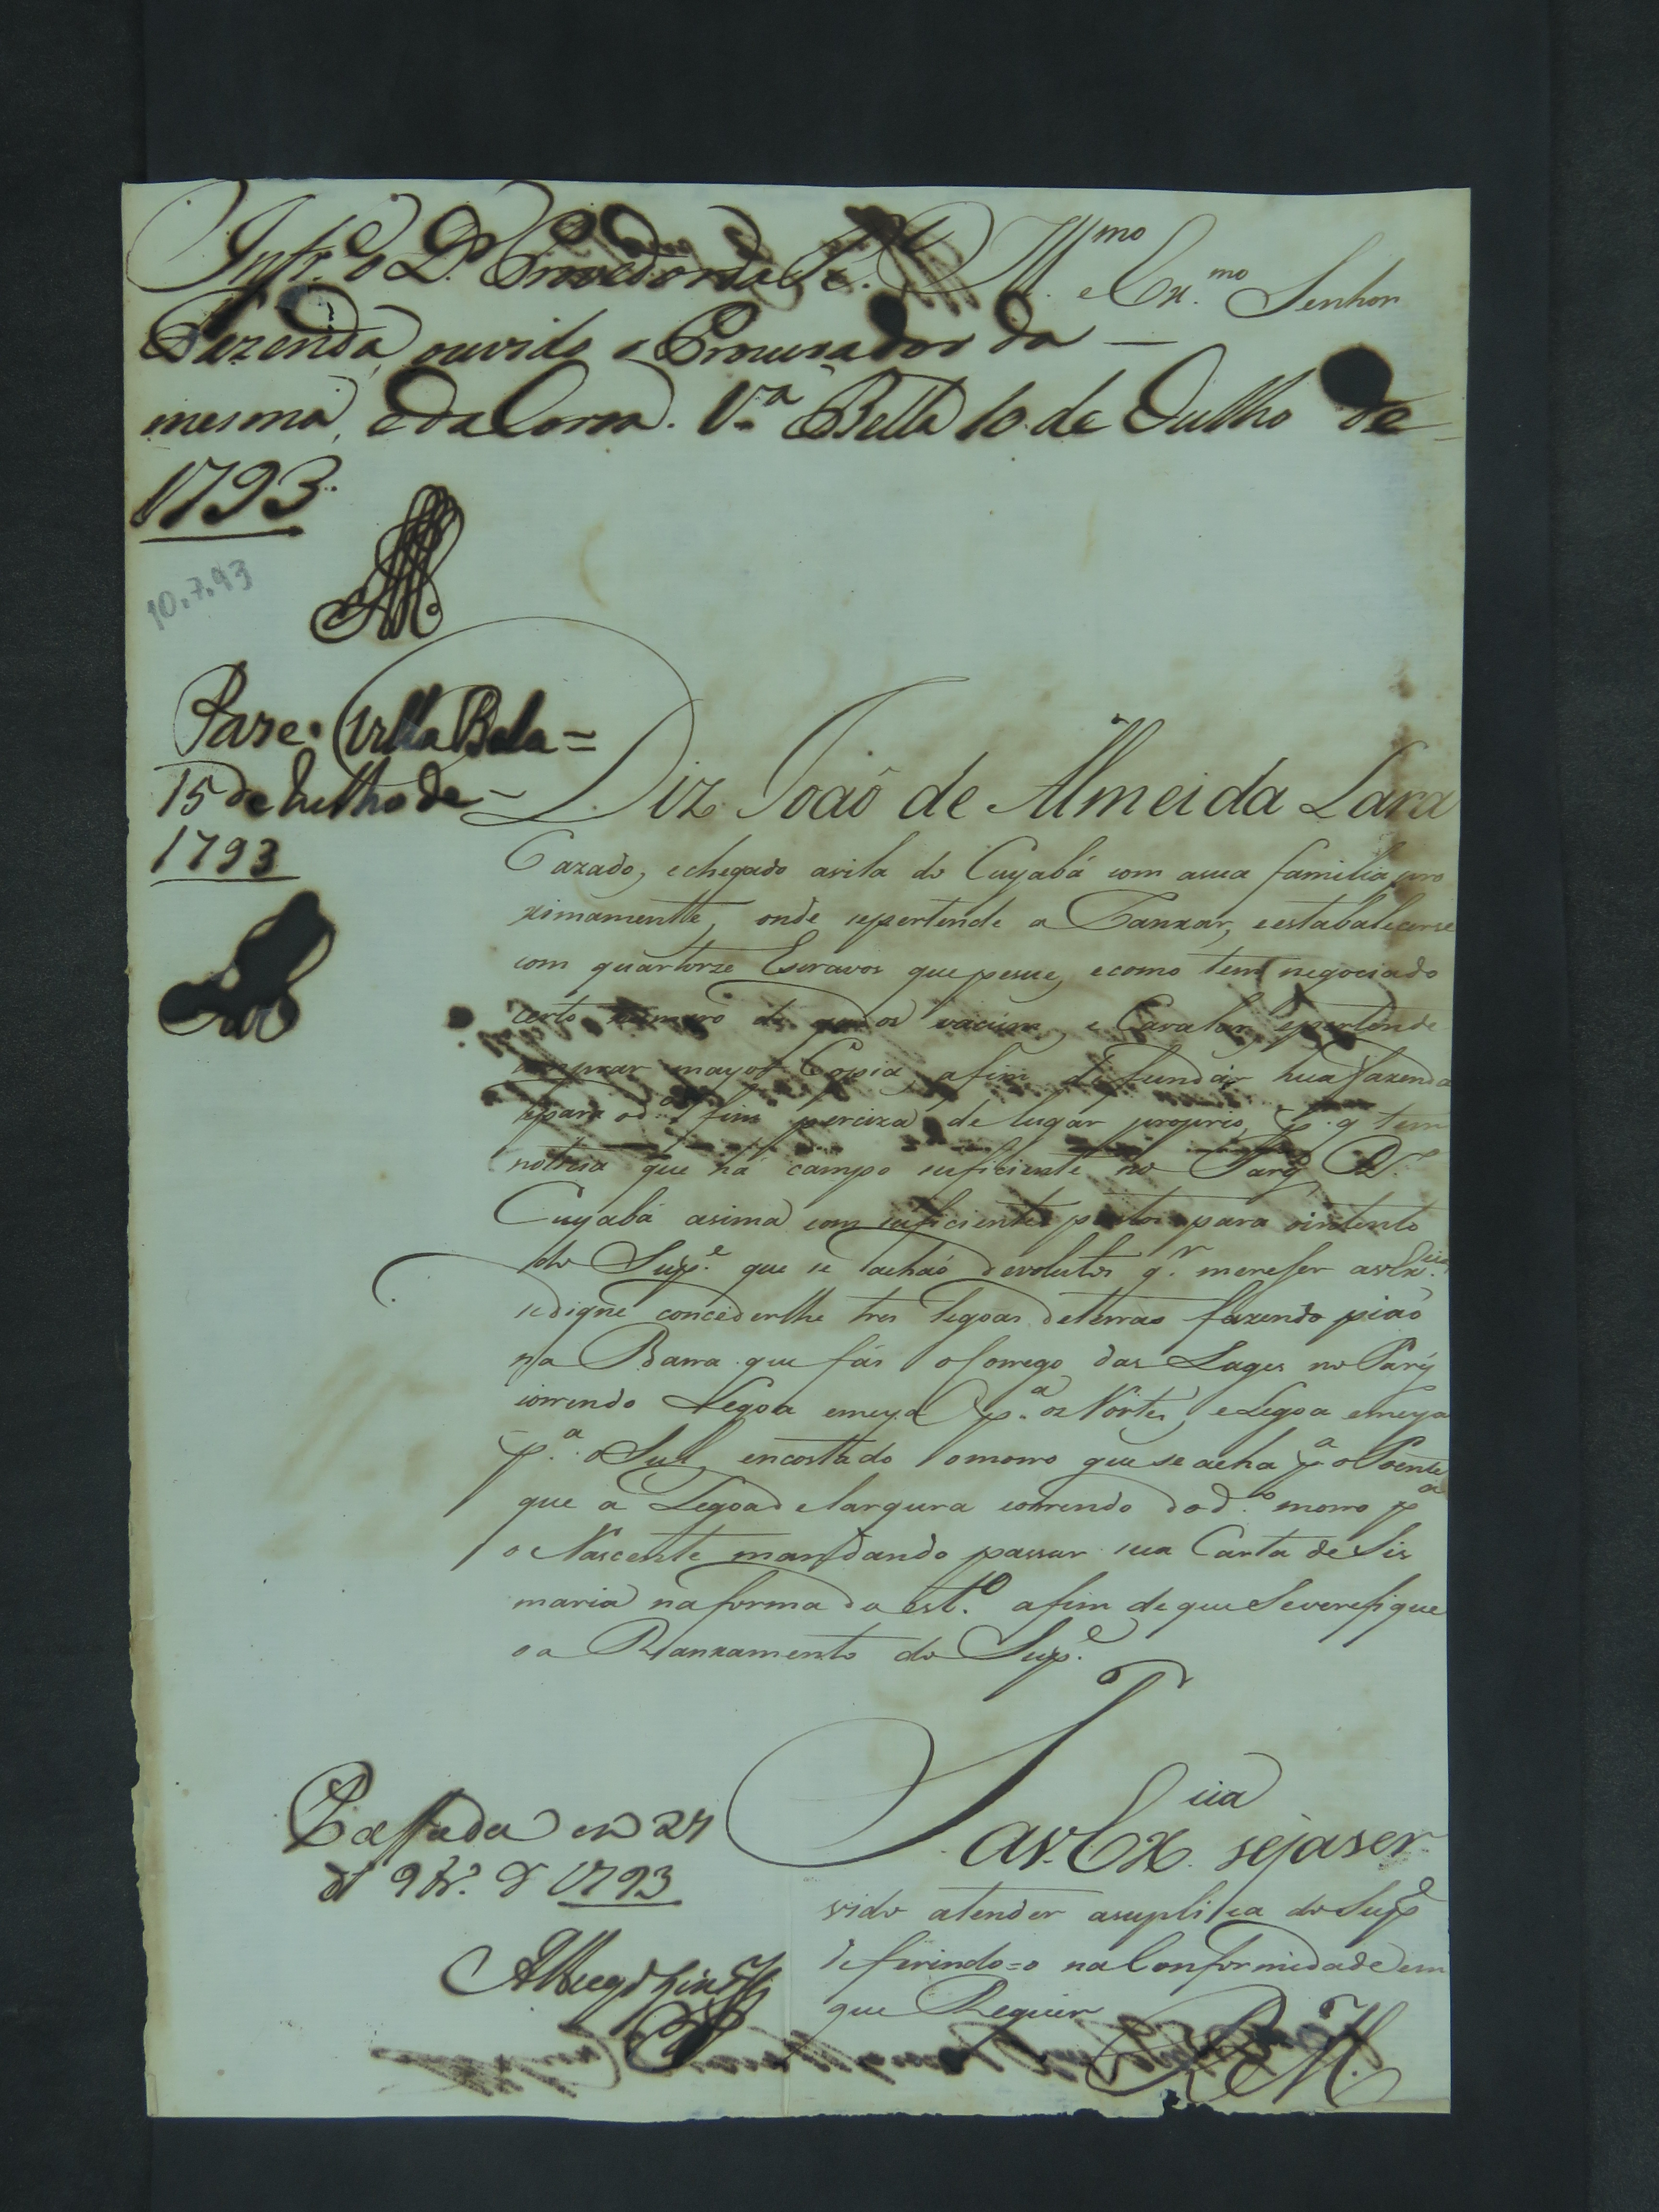 Inf.e o D.r Provedor da R.
Fazenda, ouvido o Procurador da
mesma, e da Coroa. V.a Bella 10 de Julho de
1793.
10.7.93
Ill.mo e Ex.mo Senhor
Pase. Villa Bela =
15 de Julho de
1793
Diz João de Almeida Lara
Cazado, e chegado a vila do Cuyabá com a sua familia pro
ximamentte, onde se pertende a Ranxar, e estabalecerse
com quartorze Escravos que pesue, e como tem negociado
certo numaro de gados vacum, e Cavalar, e pertende
comprar mayor Copia, afim de fundar hua fazenda
e para o d.o fim perciza de lugar proprio, e p.q tem
noticia que há campo suficiente no Parÿ R.o
Cuyabá asima com suficientes pastos para o intento
do Sup.e que se achaó devolutos q.r mereser a v Ex.cia
se digne concederlhe tres legoas de terras fazendo piaó
na Barra que fás o Corrego das Lages no Parÿ
correndo Legoa e meya p.a o Norte, e Legoa e meya
p.a o Sul, encostado o morro que se acha p.a o Poente
que a Legoa de largura correndo do d.o morro p.a
o Nascente mandando passar sua Carta de Sis
maria na forma do est.o afim de que se verefique
o a Ranxamento do Sup.e
P. a v. Ex.cia seja ser
vido atender a suplica do Sup.e
defirindo=o na Conformidade em
que Requer
E R M.
Passada em 27
d 9br.o d 1793